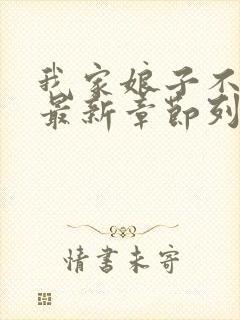 我家娘子不
最新章节列
情书未寄